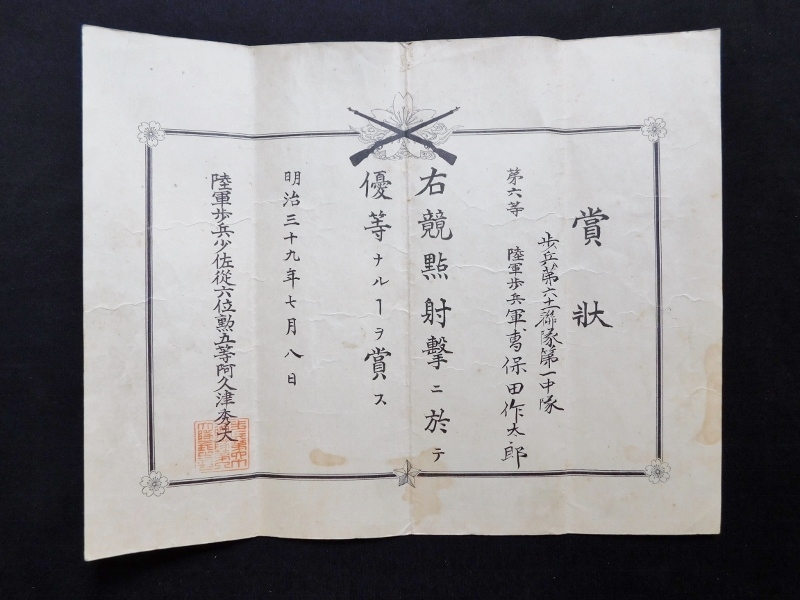 賞狀
歩兵第六十一聯隊第一中隊
第六等 陸軍歩兵軍曹保田作太郎
右競點射撃ニ於テ
優等ナルヿヲ賞ス
明治三十九年七月八日
陸軍歩兵少佐從六位勲五等阿久津秀夫